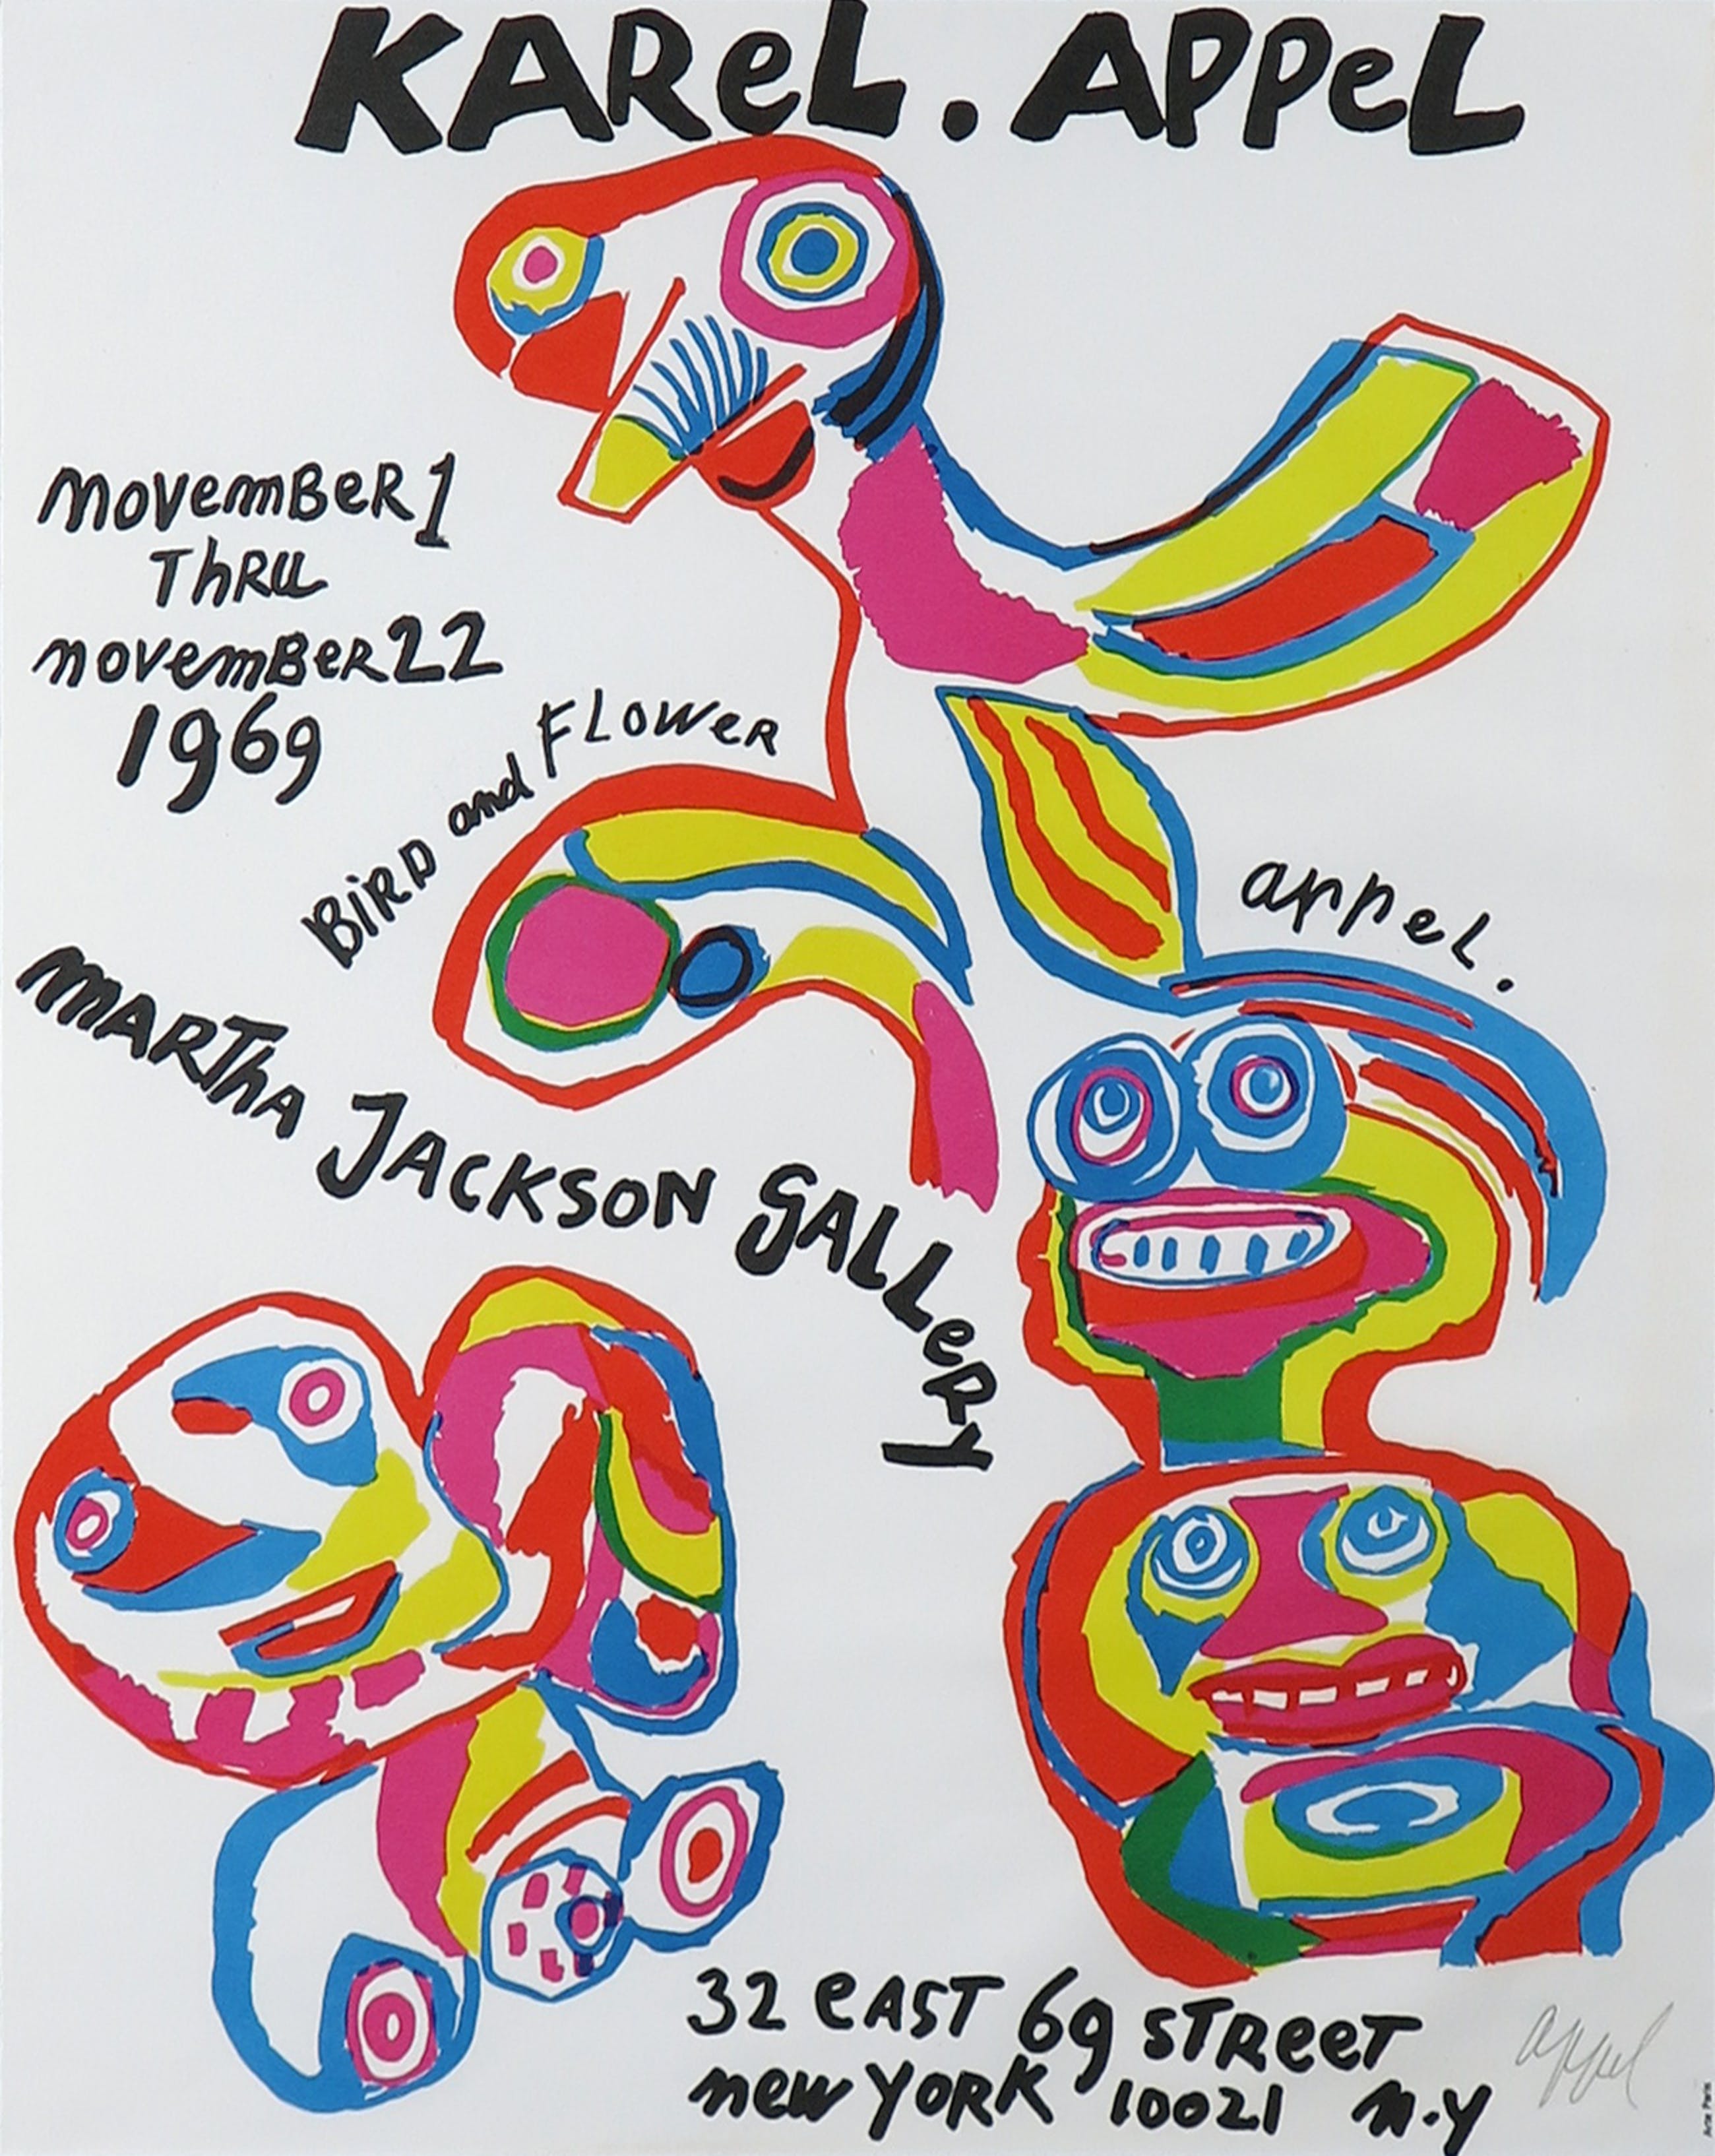 KAReL. APPeL
november 1
ThRU
november 22
1969
BiRD and FLoweR
appeL.
MARTha JACKSON GALLeRY
32 eAST 69 STReeT
new YORK 10021 N.Y
appel
Arte Paris